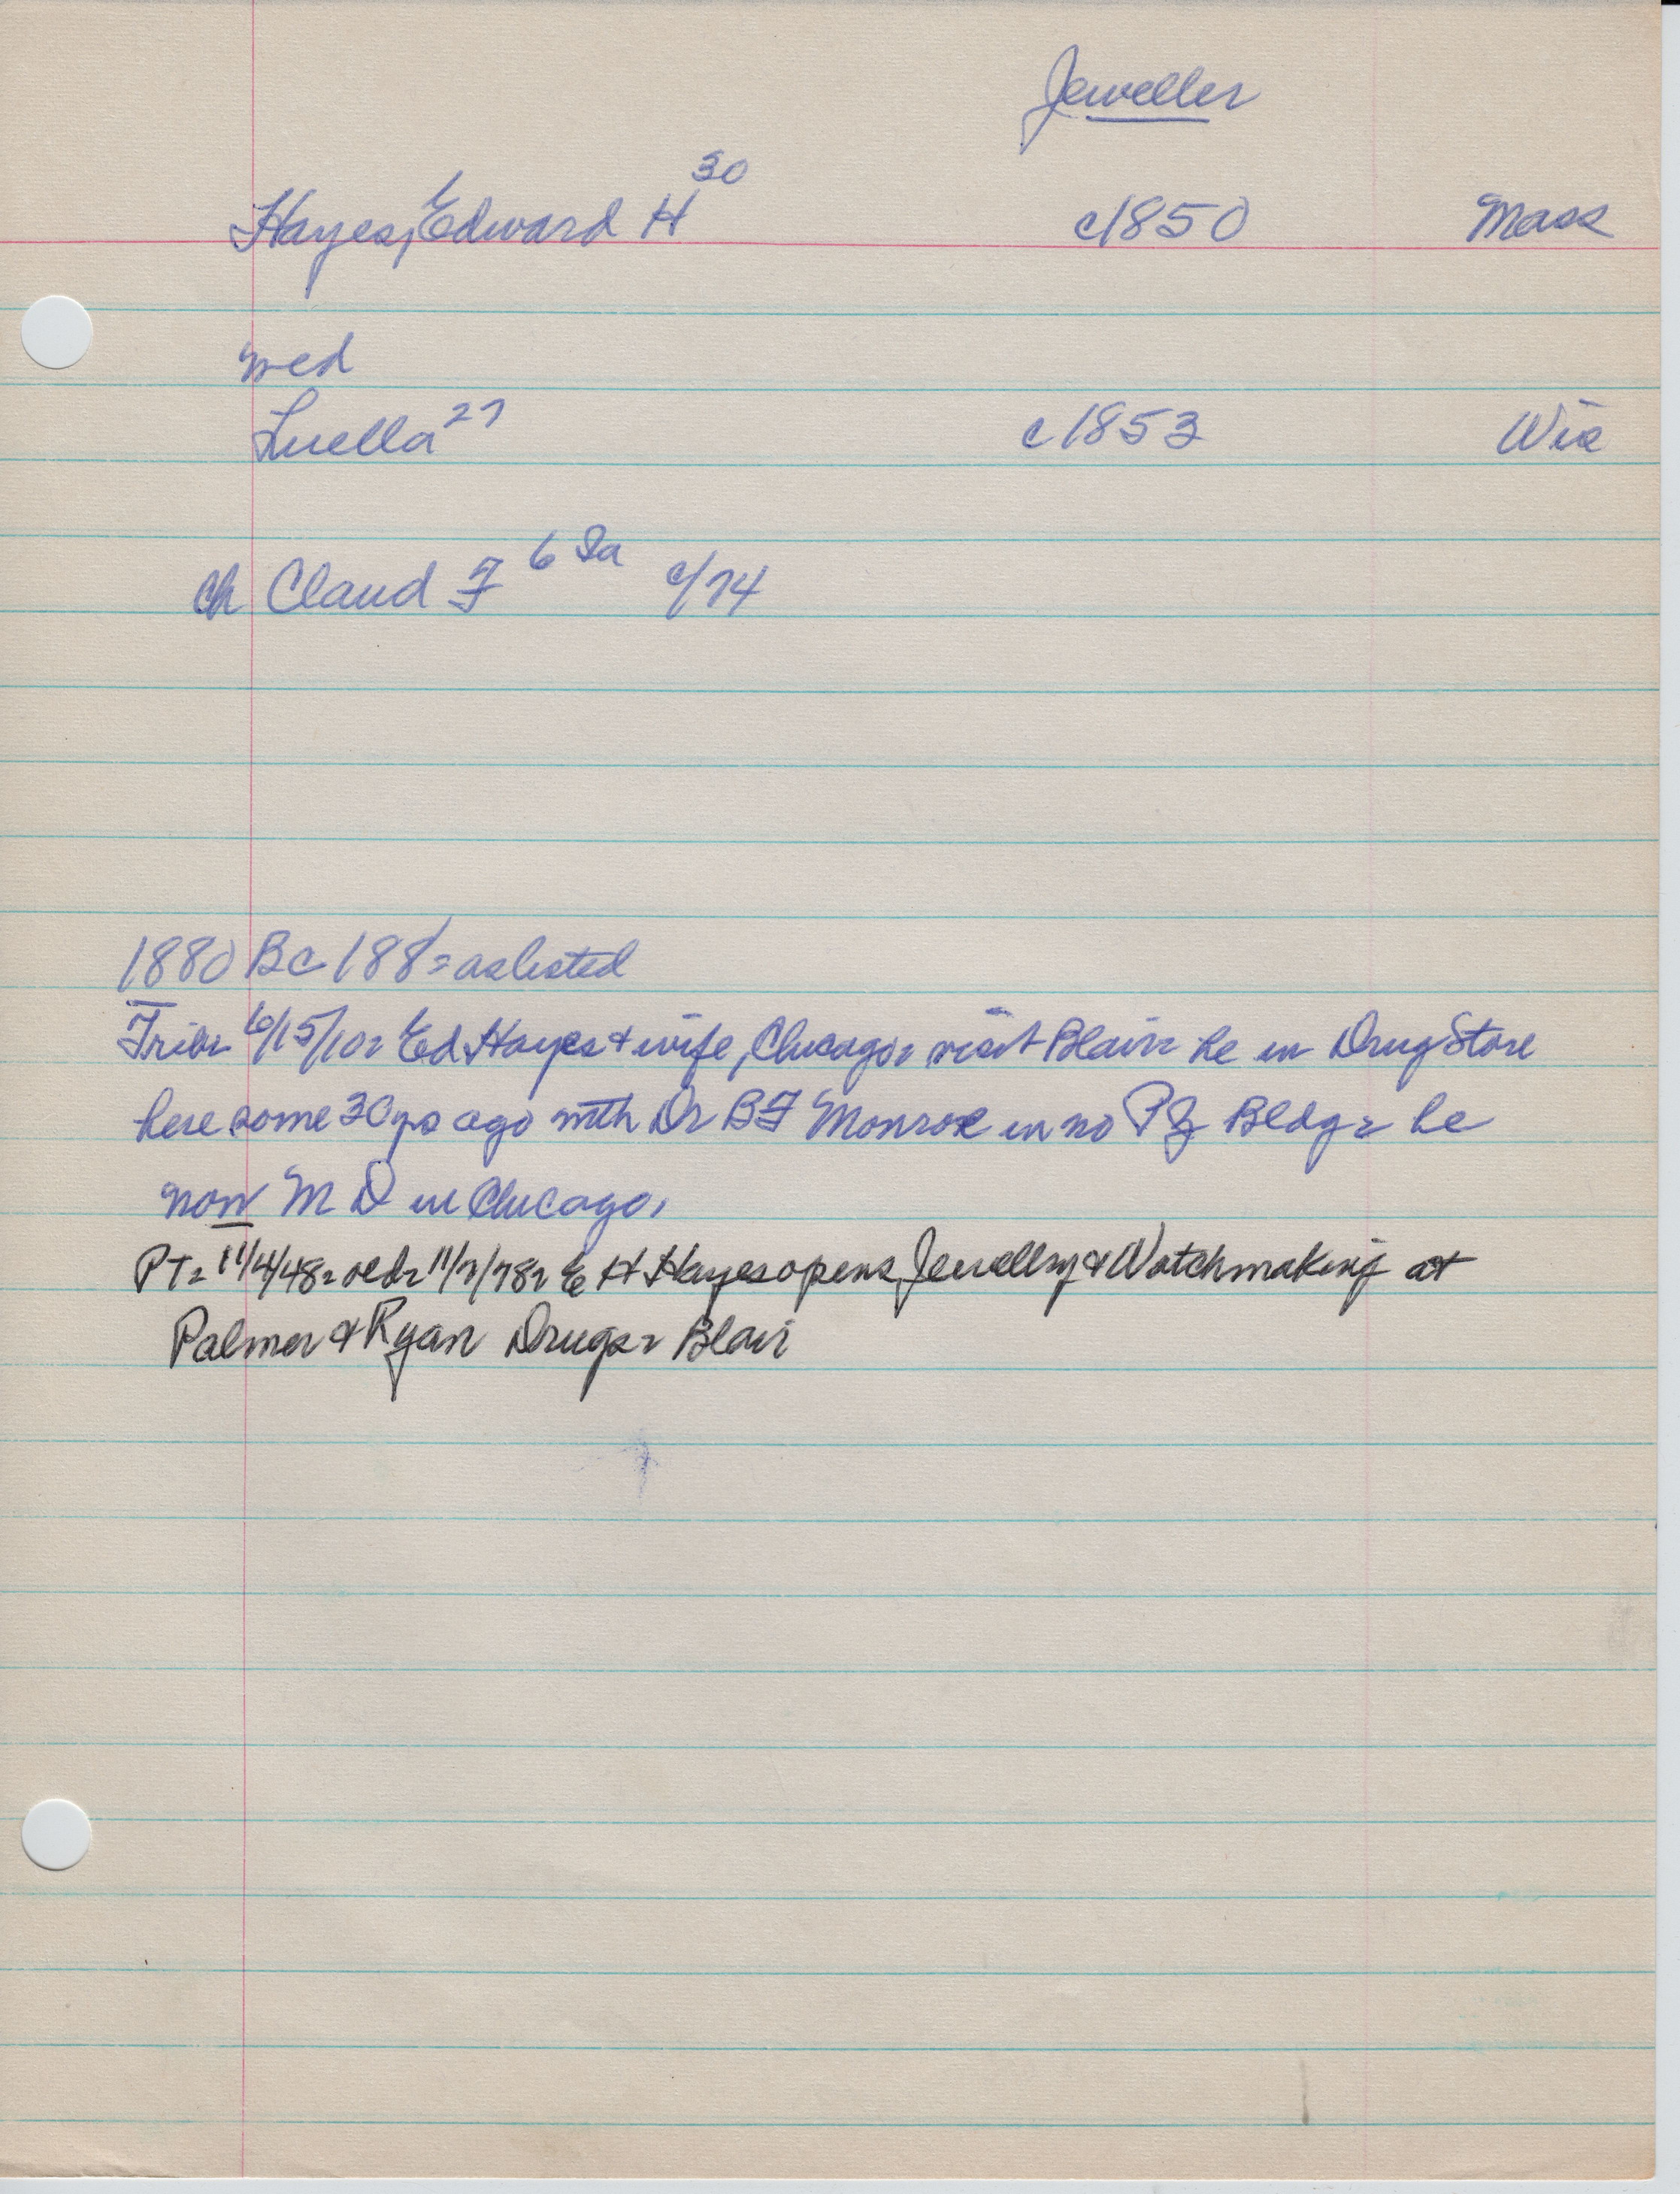 Jeweller
Hayes, Edward H 30 c1850 Mass
wed
Luella 27 c1853 Wis
ch Claud F 6 Ia c/74
1880 Bc 188= as listed
Trib= 6/15/10= Ed Hayes + wife, Chicago= visit Blair= he in Drug Store
here some 30 yrs ago with Dr BF Monroe in no Bldg= he
now M D in Chicago.
PT= 11/4/48= old= 11/7/78= E H Hayes opens Jewellry & Watchmaking at
Palmer & Ryan Drugs= Blair